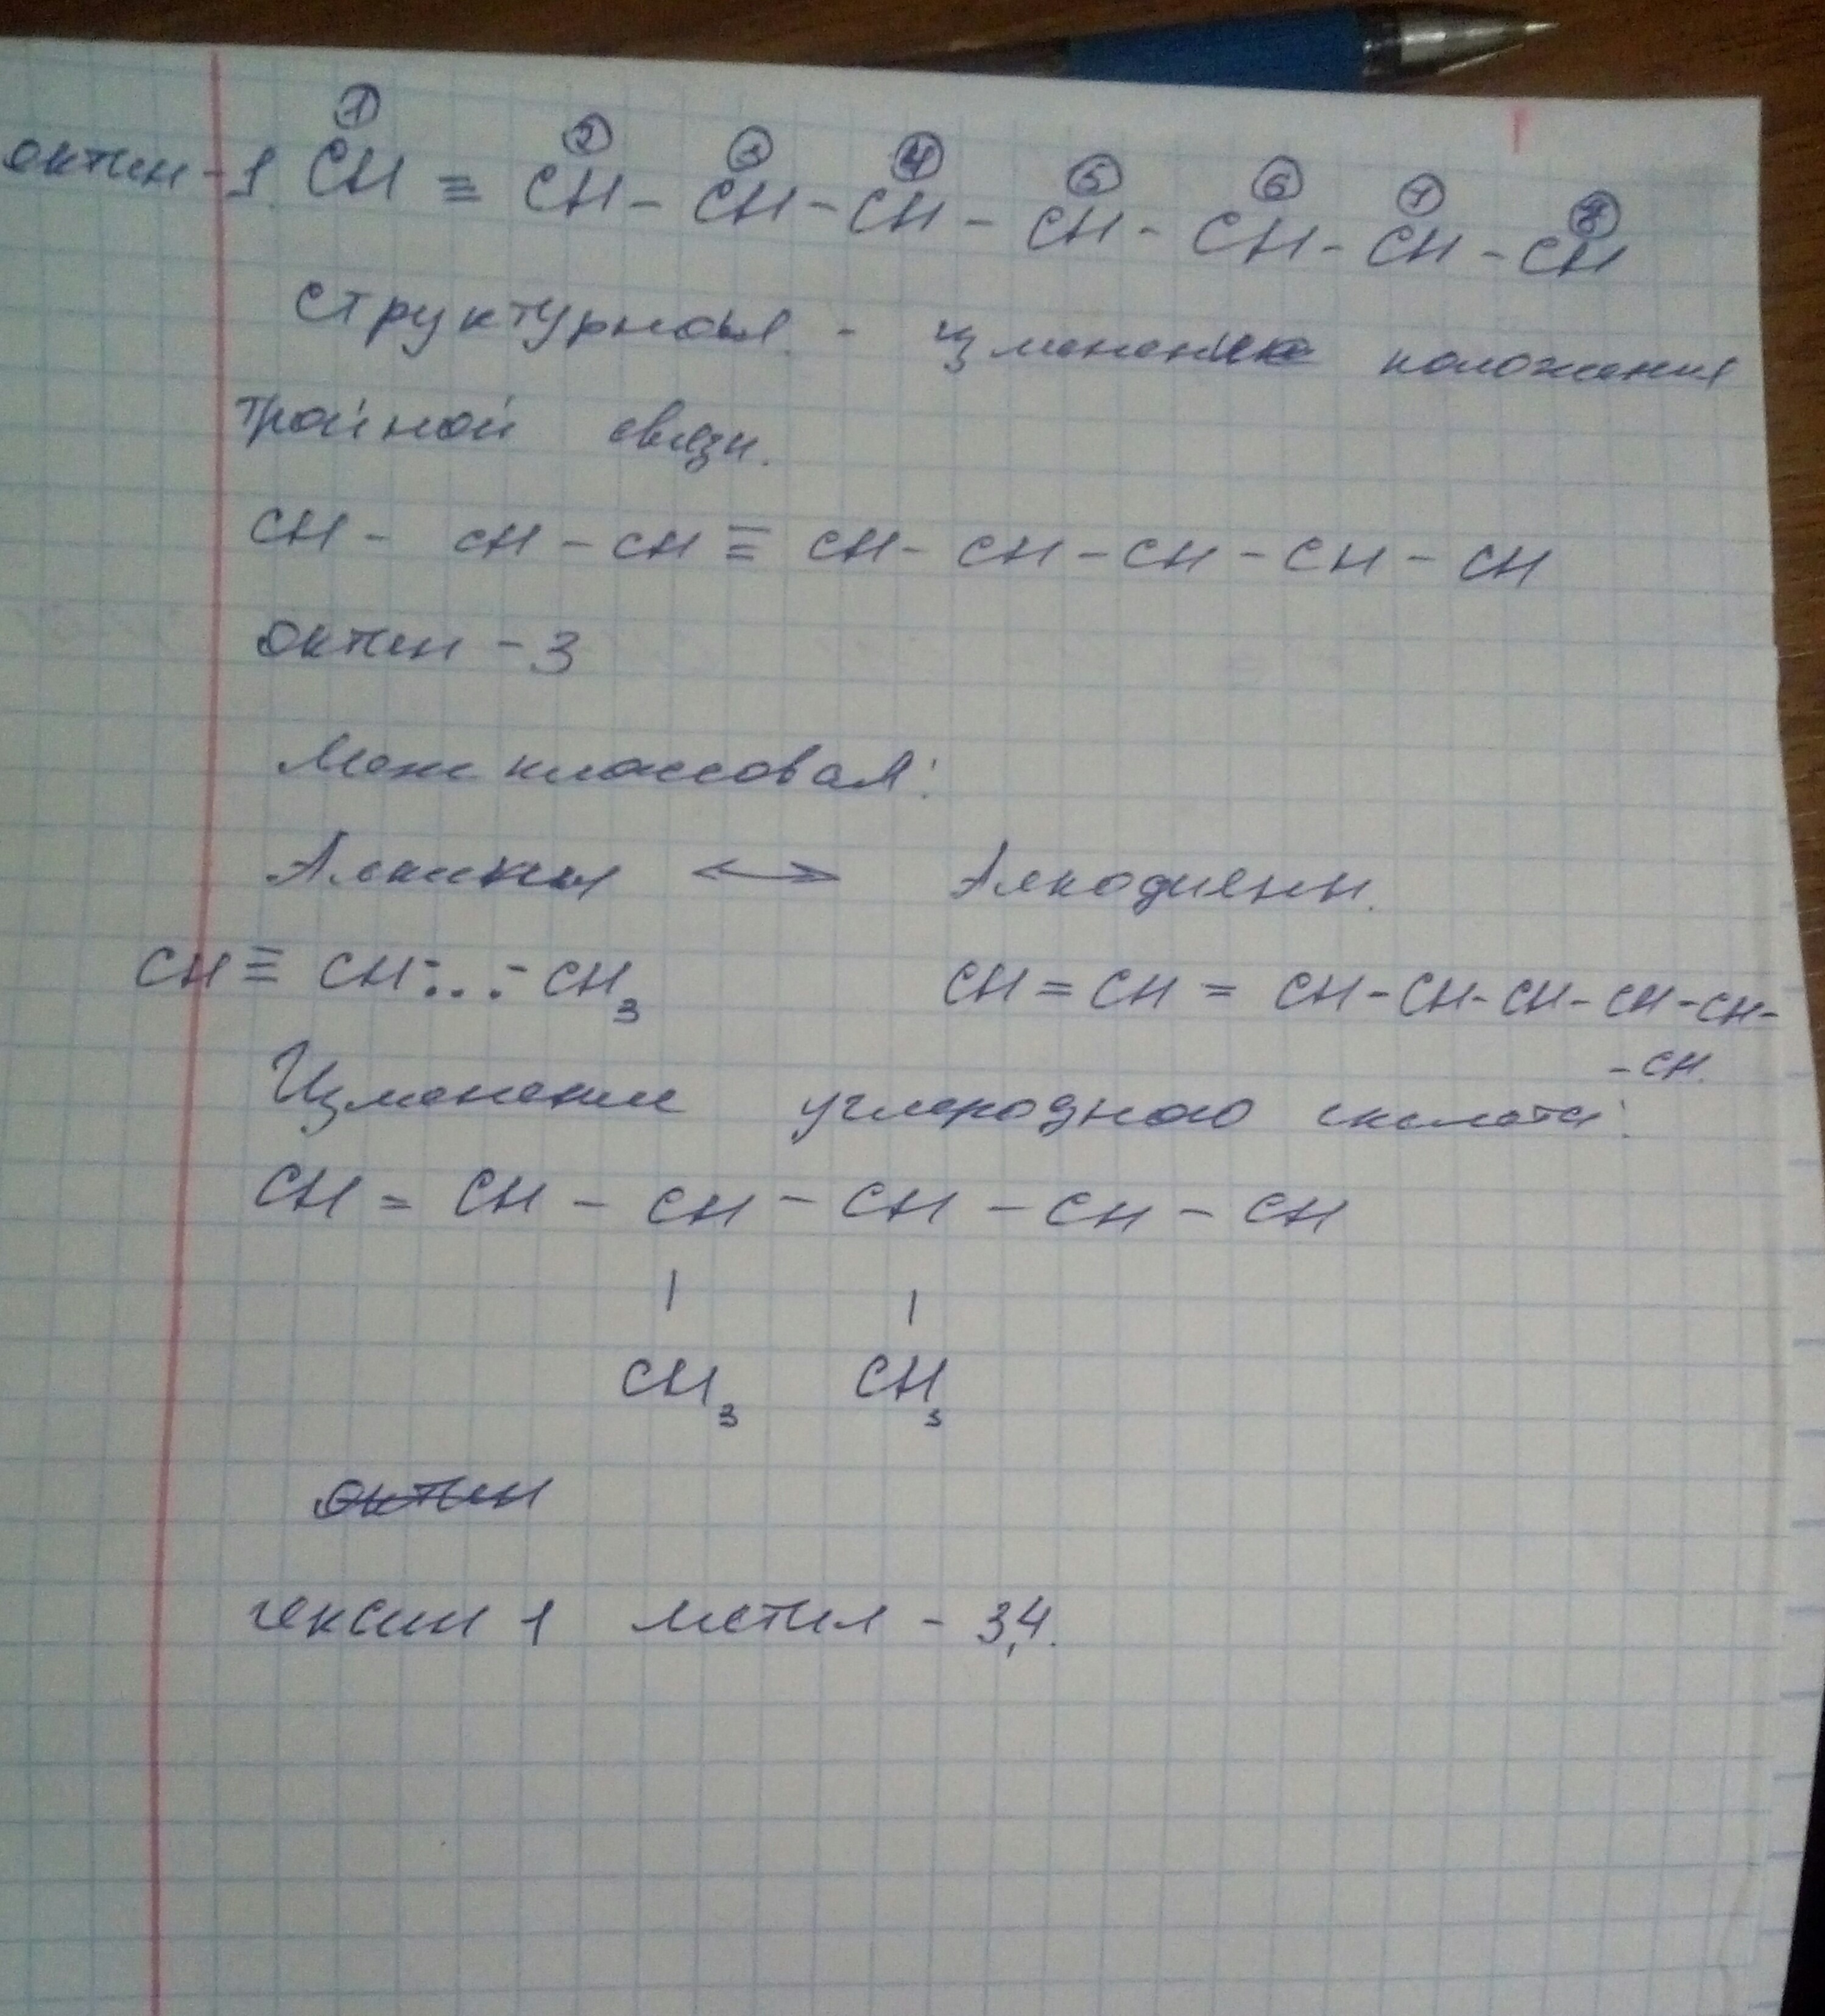 ① ② ③ ④ ⑤ ⑥ ⑦ ⑧
октин-1. CH ≡ CH - CH - CH - CH - CH - CH - CH
Структурная. - изменение положения
тройной связи.
CH - CH - CH ≡ CH - CH - CH - CH - CH
октин - 3
Межклассовая:
Алкины ↔ Алкодиенн.
CH ≡ CH -...- CH₃ CH = CH = CH - CH - CH - CH - CH -
- CH.
Изменение углеродного скелета:
CH = CH - CH - CH - CH - CH
CH₃ CH₃
октин
гексин 1 метил - 3,4.